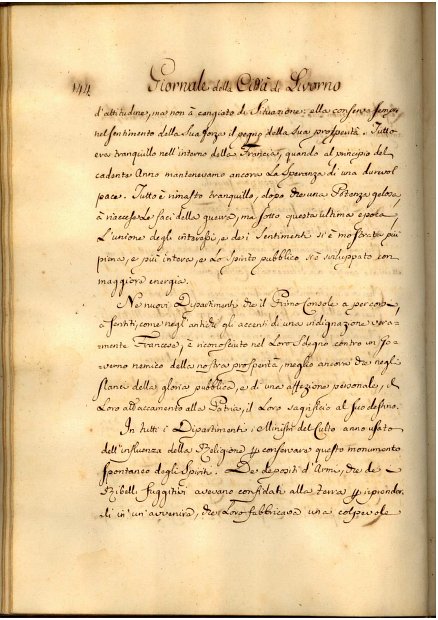 144 Giornale della Città di Livorno
d'attitudine, ma non à cangiato di Situazione: ella conserva sempre
nel sentimento della Sua forza il pegno della Sua prosperità. Tutto
era tranquillo nell'interno della Francia, quando al principio del
cadente Anno mantenevano ancora La Speranza di una durevol
pace. Tutto è rimasto tranquillo, dopo che una Potenza gelosa,
à riaccese Le faci della guerra, ma sotto questa ultima epoca
L'unione degli interessi, e dei Sentimenti si è mostrata più
piena, e più intera, e Lo Spirito pubblico si è sviluppato con
maggiore energia.
Ne nuovi Dipartimenti che il Primo Console a percorsi,
à sentiti, come negl'antichi gli accenti di una indignazione vera=
mente Francese, è riconosciuto nel Loro Sdegno contro un Go=
verno nemico della nostra prosperità, meglio ancora che negli
slanci della gloria pubblica, e di una affezione personale, il
Loro attaccamento alla Patria, il Loro sagrifizio al suo destino.
In tutti i Dipartimenti i Ministri del Culto anno usato
dell'influenza della Religione per conservare questo monumento
spontaneo degli Spiriti. De depositi d'Armi, che de
Ribelli fuggitivi avevano confidati alla terra per riprender=
=li in un'avvenire, che Loro fabbricava una colpevole